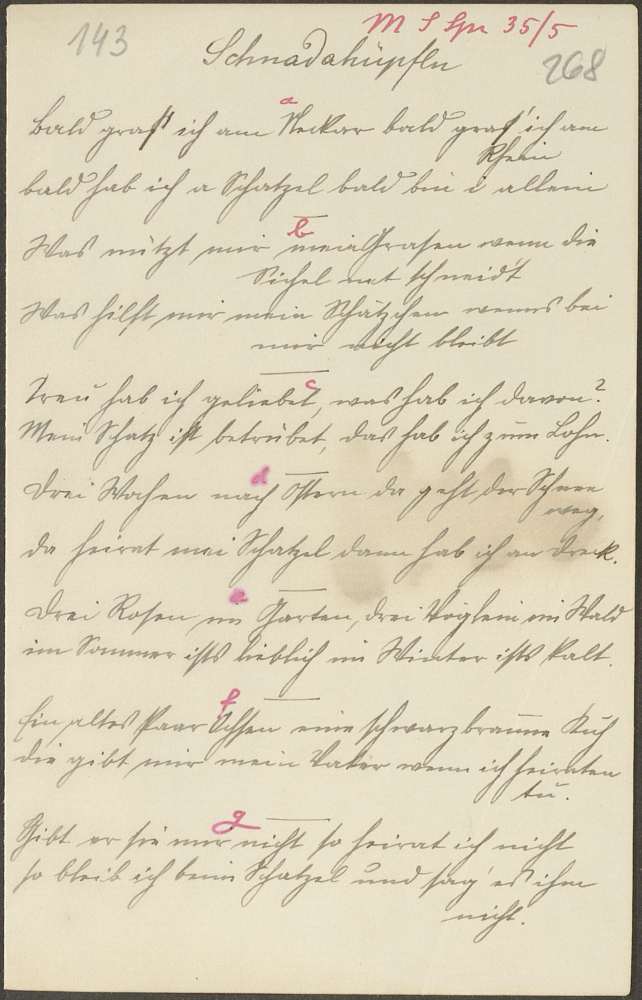 143
M S Spr 35/5
Schnadahüpfln
268
a
Bald gras' ich am Neckar bald gras' ich am
Rhein
bald hab ich a Schatzel bald bin i allein
b
Was nützt mir mein Grasen wenn die
Sichel net schneidt
Was hilft mir mein Schätzchen wenns bei
mir nicht bleibt
c
Treu hab ich geliebet, was hab ich davon?
Mein Schatz ist betrübet, das hab ich zum Lohn.
d
Drei Wochen nach Ostern da geht der Schnee
weg,
da heirat mei Schatzel dann hab ich an Dreck.
e
Drei Rosen im Garten, drei Vöglein im Wald
im Sommer ists lieblich im Winter ists kalt.
f
Ein altes Paar Ochsen eine schwarzbraune Kuh
die gibt mir mein Vater wenn ich heiraten
tu.
g
Gibt er sie mir nicht so heirat ich nicht
so bleib ich beim Schatzel und sag' es ihm
nicht.